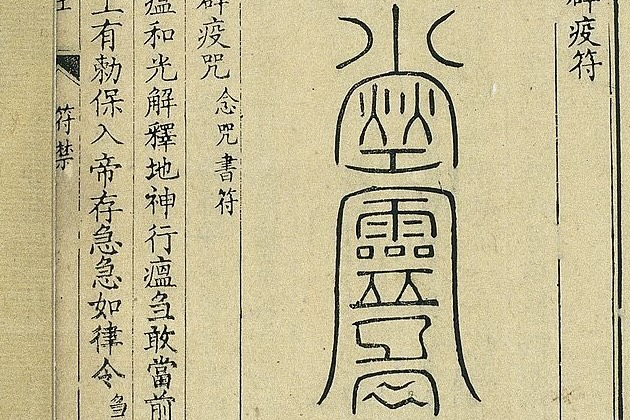 疫符
疫咒 念咒書符
瘟和光解釋地神行瘟刍敢當前
上有勅保入帝存急急如律令 刍
符禁